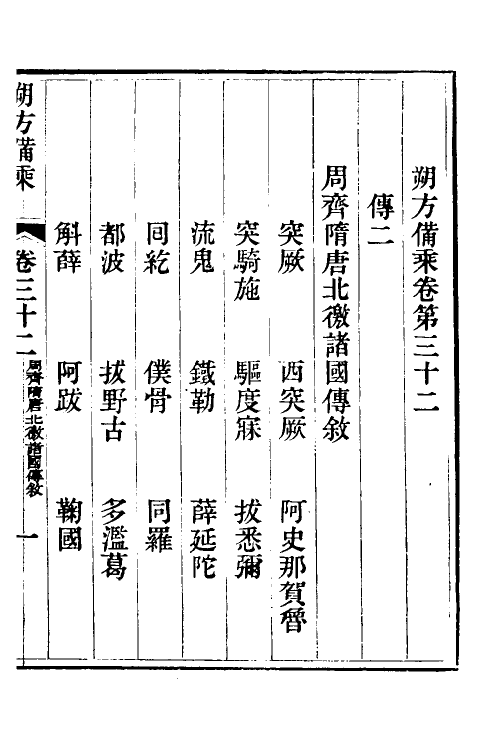 朔方備乘卷第三十二
傳二
周齊隋唐北徼諸國傳敘
突厥 西突厥 阿史那賀魯
突騎施 驅度寐 拔悉彌
流鬼 鐵勒 薛延陀
回紇 僕骨 同羅
都波 拔野古 多濫葛
斛薛 阿跋 鞠國
朔方備乘 卷三十二 周齊隋唐北徼諸國傳敘 一